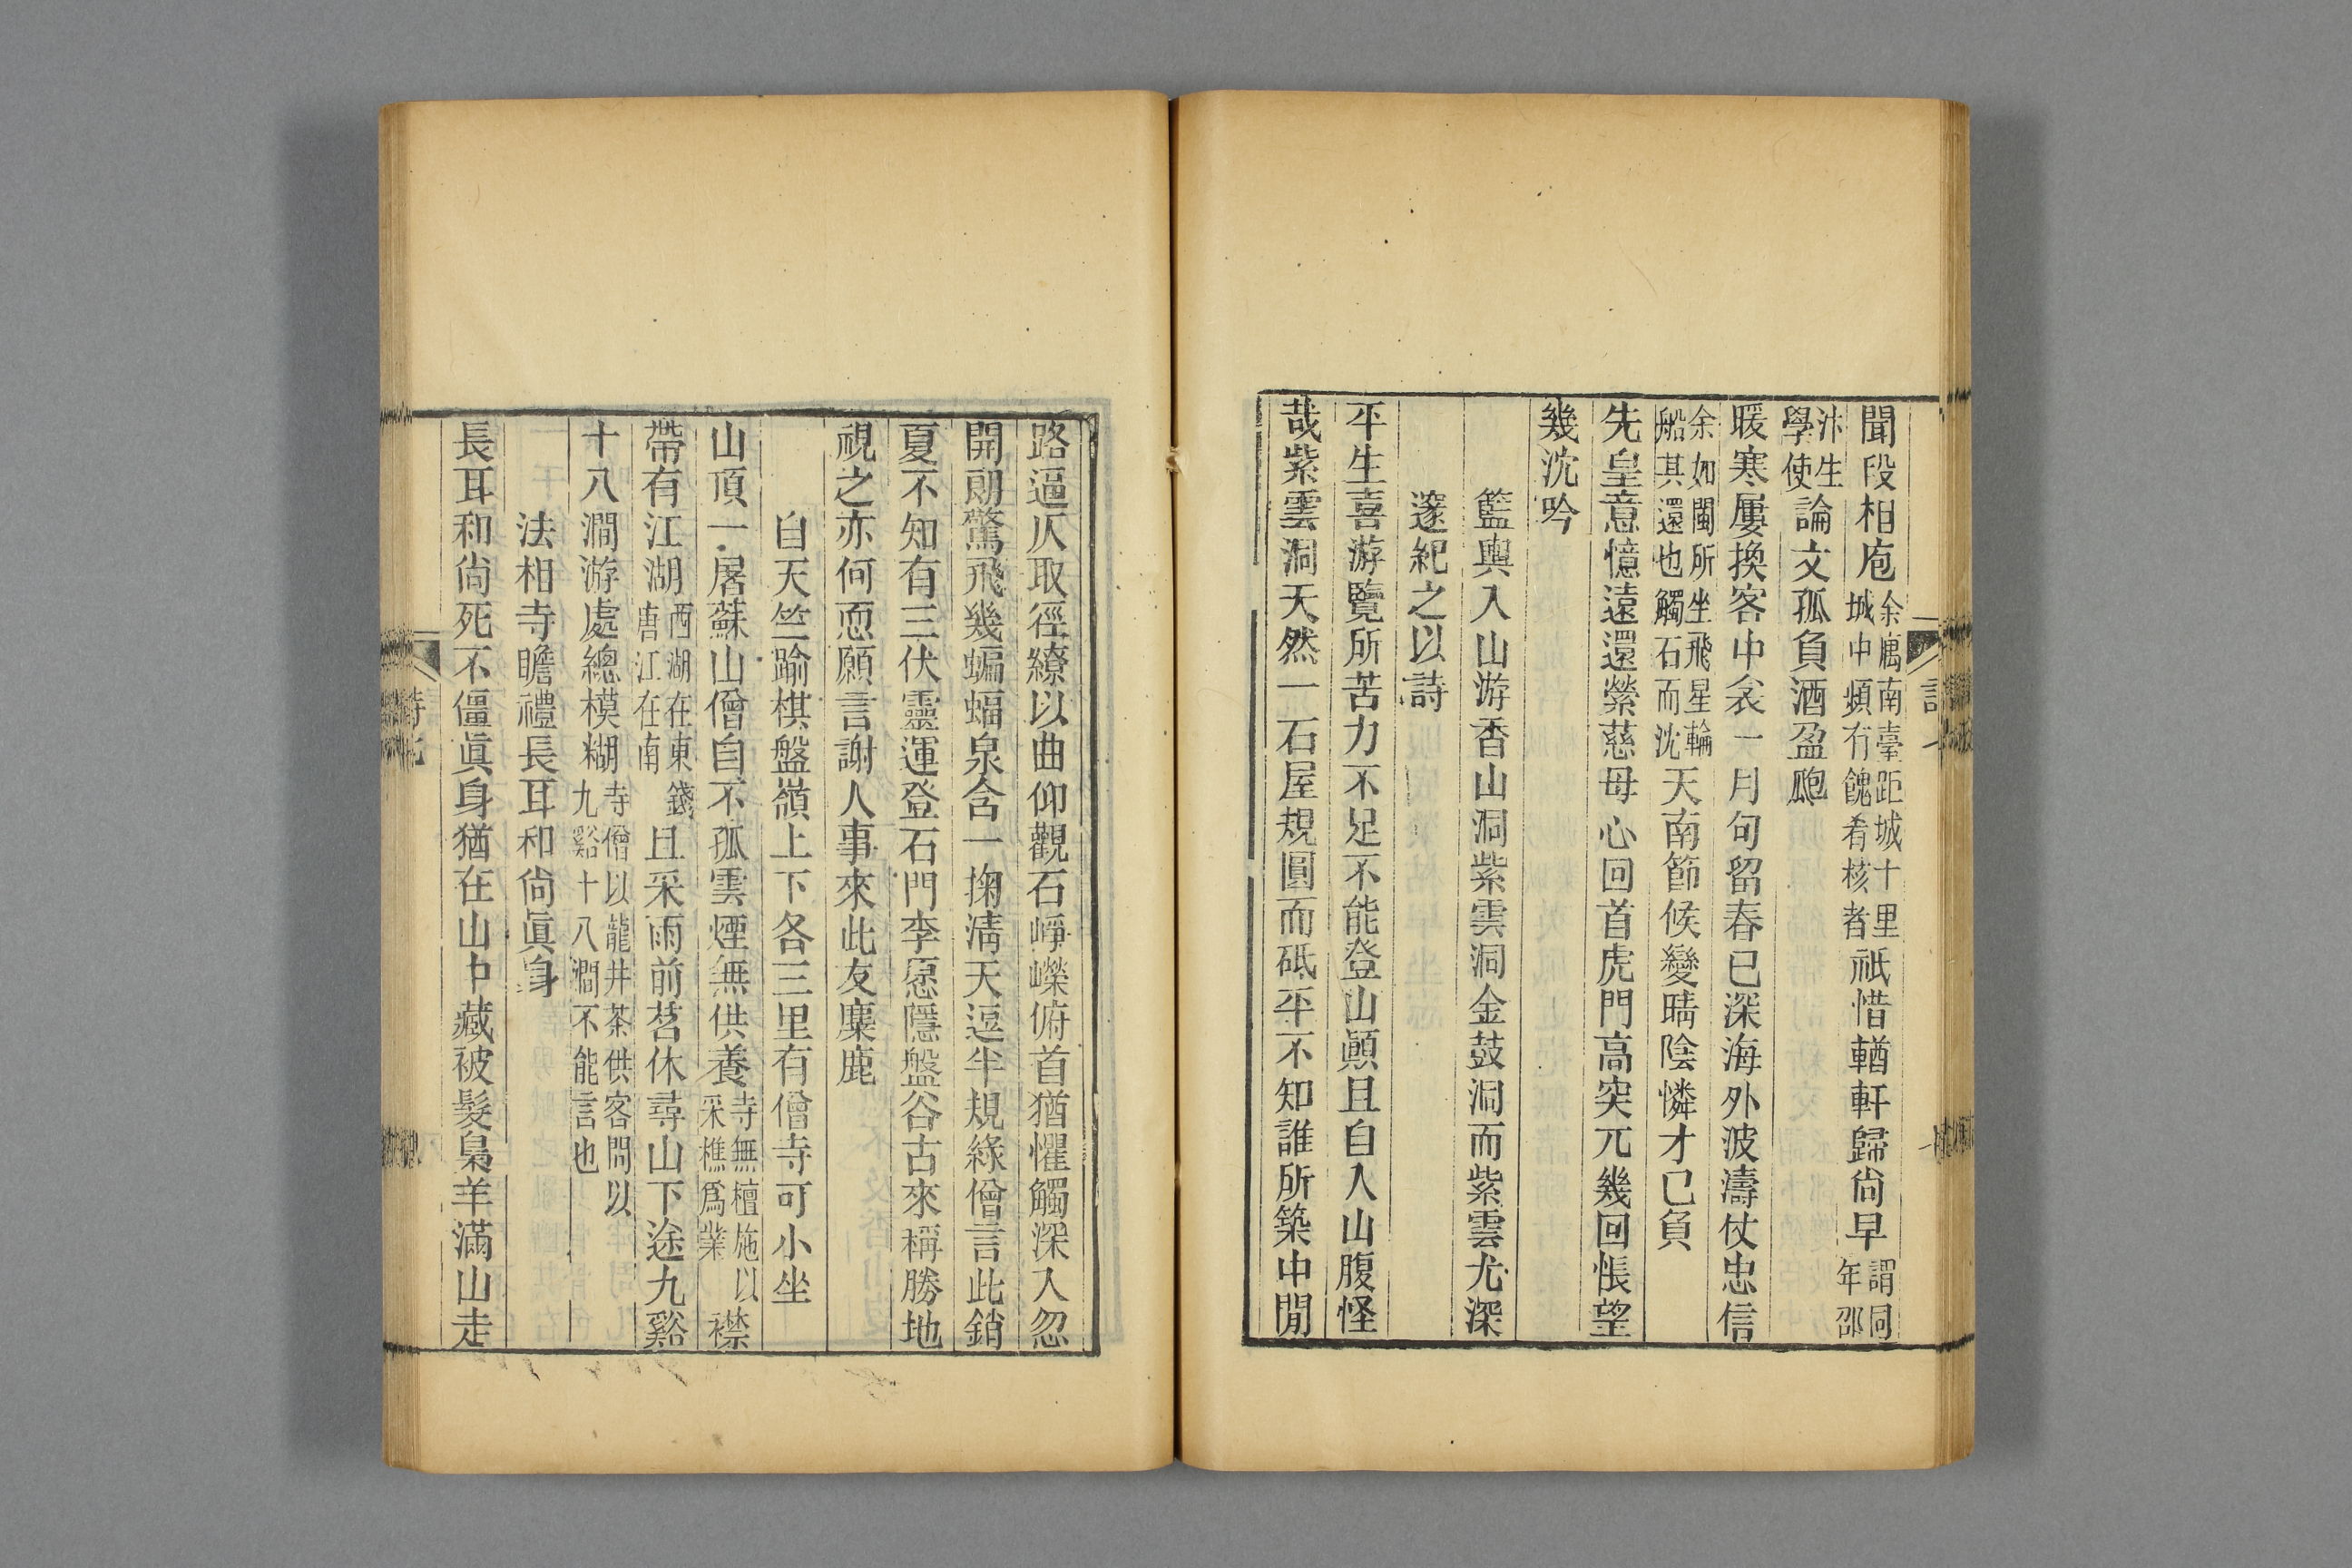 聞段相庖余寓南臺距城十里城中頻有餽肴核者祇惜輶軒歸尙早謂同年邵
汴生學使論文孤負酒盈瓟
暖寒屢換客中衾一月句留春已深海外波濤仗忠信
余如閩所坐飛星輪船其還也觸石而沈天南節候變晴陰憐才已負
先皇意憶遠還縈慈母心回首虎門高突兀幾回悵望
幾沈吟
籃輿入山游香山洞紫雲洞金鼓洞而紫雲尤深
邃紀之以詩
平生喜游覽所苦力不足不能登山顚且自入山腹怪
哉紫雲洞天然一石屋規圓而砥平不知誰所築中閒
路逼仄取徑繚以曲仰觀石崢嶸俯首猶懼觸深入忽
開朗驚飛幾蝙蝠泉含一掬淸天逗半規綠僧言此銷
夏不知有三伏靈運登石門李愿隱盤谷古來稱勝地
視之亦何恧願言謝人事來此友麋鹿
自天竺踰棋盤嶺上下各三里有僧寺可小坐
山頂一屠蘇山僧自不孤雲煙無供養寺無檀施以采樵爲業襟
帶有江湖西湖在東錢唐江在南且采雨前茗休尋山下途九谿
十八澗游處總模糊寺僧以龍井茶供客問以九谿十八澗不能言也
法相寺瞻禮長耳和尙眞身
長耳和尙死不僵眞身猶在山中藏被髮梟羊滿山走